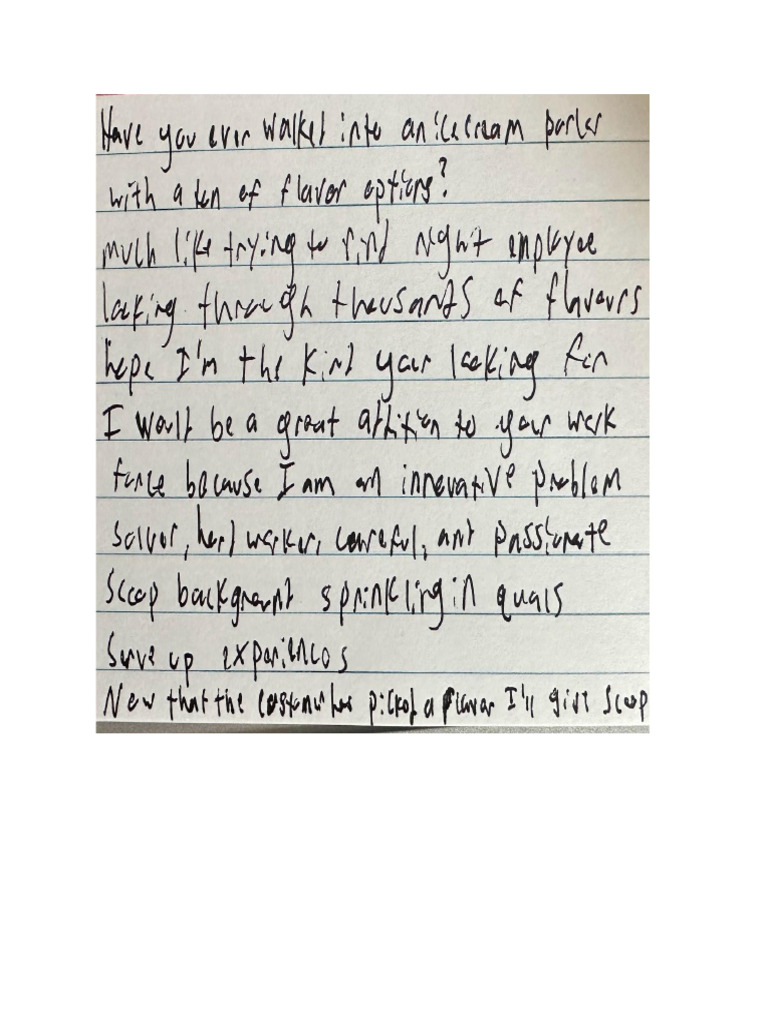 Have you ever walked into an icecream parler
with a ton of flavor options?
much like trying to find right employee
looking through thousands of flavours
hope I'm the kind your looking for
I would be a great addition to your work
force because I am an innovative problem
solver, hard worker, careful, and passionate
Scoop background sprinkling in quals
Serve up experiences
Now that the customer has picked a flavor I'll give scoop